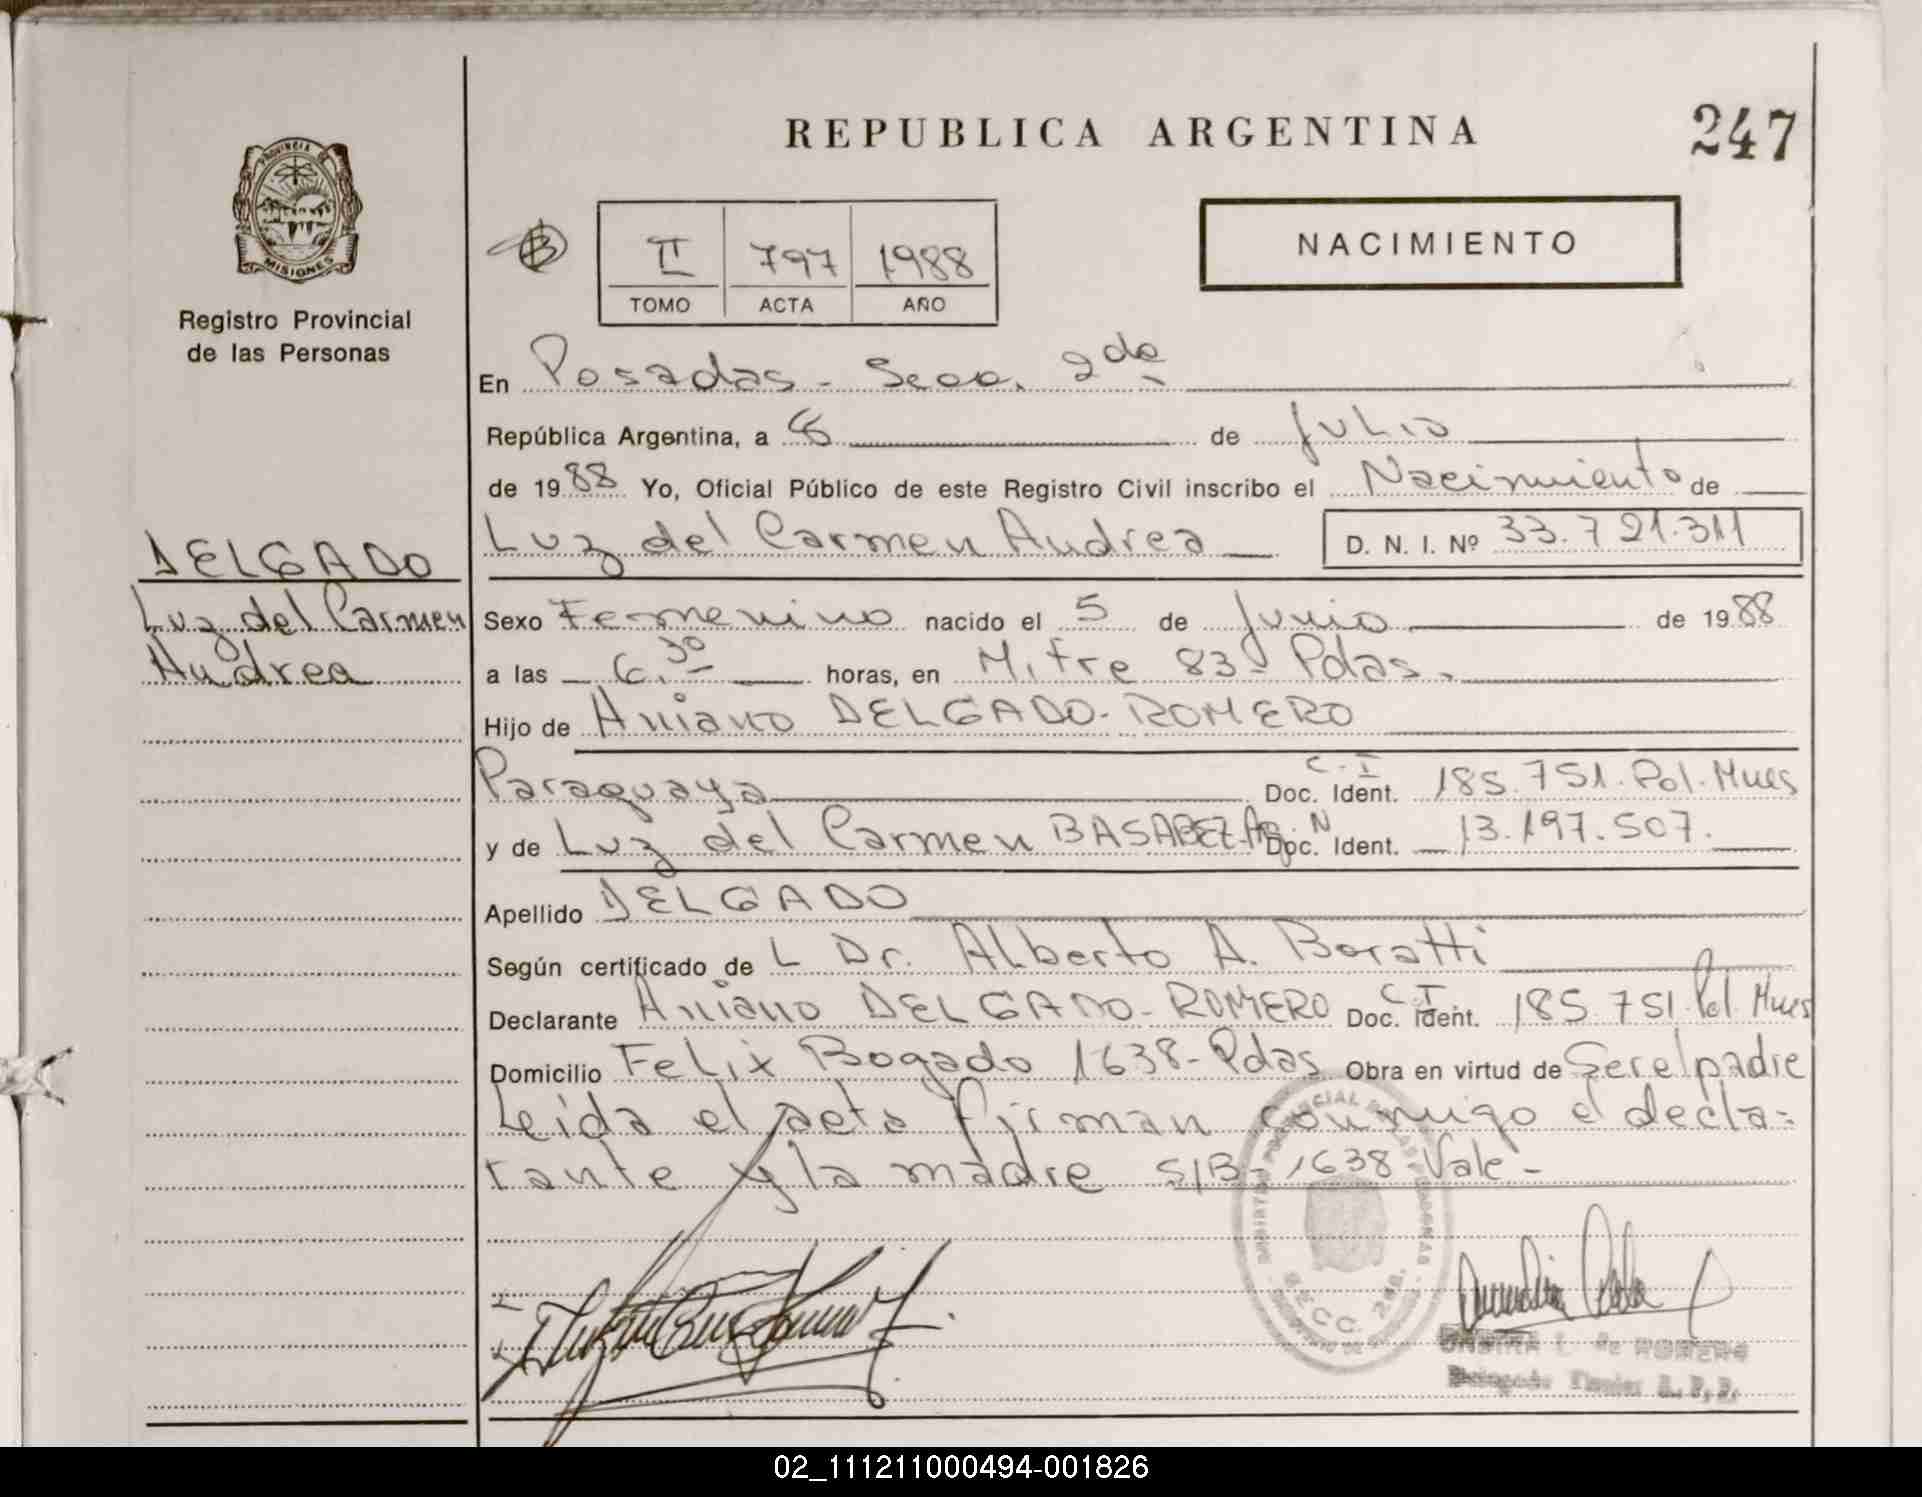 REPUBLICA ARGENTINA
247
PROVINCIA DE
MISIONES
Registro Provincial
de las Personas
II 797 1988
TOMO ACTA AÑO
NACIMIENTO
En Posadas - Secc. 2da
República Argentina, a 8 de Julio
de 1988 Yo, Oficial Público de este Registro Civil inscribo el Nacimiento de
Luz del Carmen Andrea D. N. I. Nº 33.721.311
DELGADO
Luz del Carmen
Andrea
Sexo Femenino nacido el 5 de Junio de 1988
a las 6.30 horas, en Mitre 83 - Pdas.
Hijo de Aniano DELGADO-ROMERO
Paraguaya C.I Doc. Ident. 185.751. Pol. Mnes
y de Luz del Carmen BASABEZ-Ar. N Doc. Ident. 13.197.507.
Apellido DELGADO
Según certificado de L Dr. Alberto A. Boratti
Declarante Aniano DELGADO-ROMERO C.I Doc. Ident. 185.751 Pol. Mnes
Domicilio Felix Bogado 1638-Pdas Obra en virtud de Ser el padre
Leida el acta firman conmigo el decla=
rante y la madre S/B-1638 Vale-
SECC. 2da.
L. de ROMERO
02_111211000494-001826